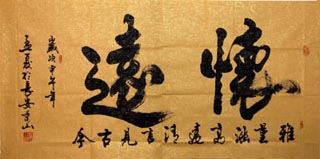 懷遠
雅量涵高遠清言見古今
歲次甲午年
孟夏於長安